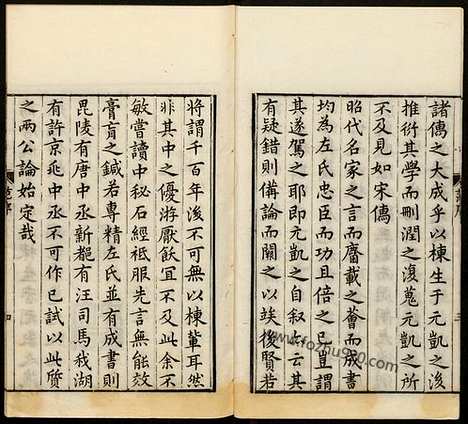 諸傳之大成乎以棟生于元凱之後
推衍其學而刪潤之復蒐元凱之所
不及見如宋儒
昭代名家之言而臚載之薈而成書
均為左氏忠臣而功且倍之已豈謂
其遂駕之耶即元凱自叙云其
有疑錯則備論而闕之以竢後賢若
將謂千百年後不可無以棟軰耳然
非其中之優游厭飫宜不及此余不
敏嘗讀中秘石經祗服先言無能效
膏肓之鍼若專精左氏並有成書則
毘陵有唐中丞新都有汪司馬我湖
有許京兆中丞不可作已試以此質
之兩公論始定哉
www.fozhu920.com